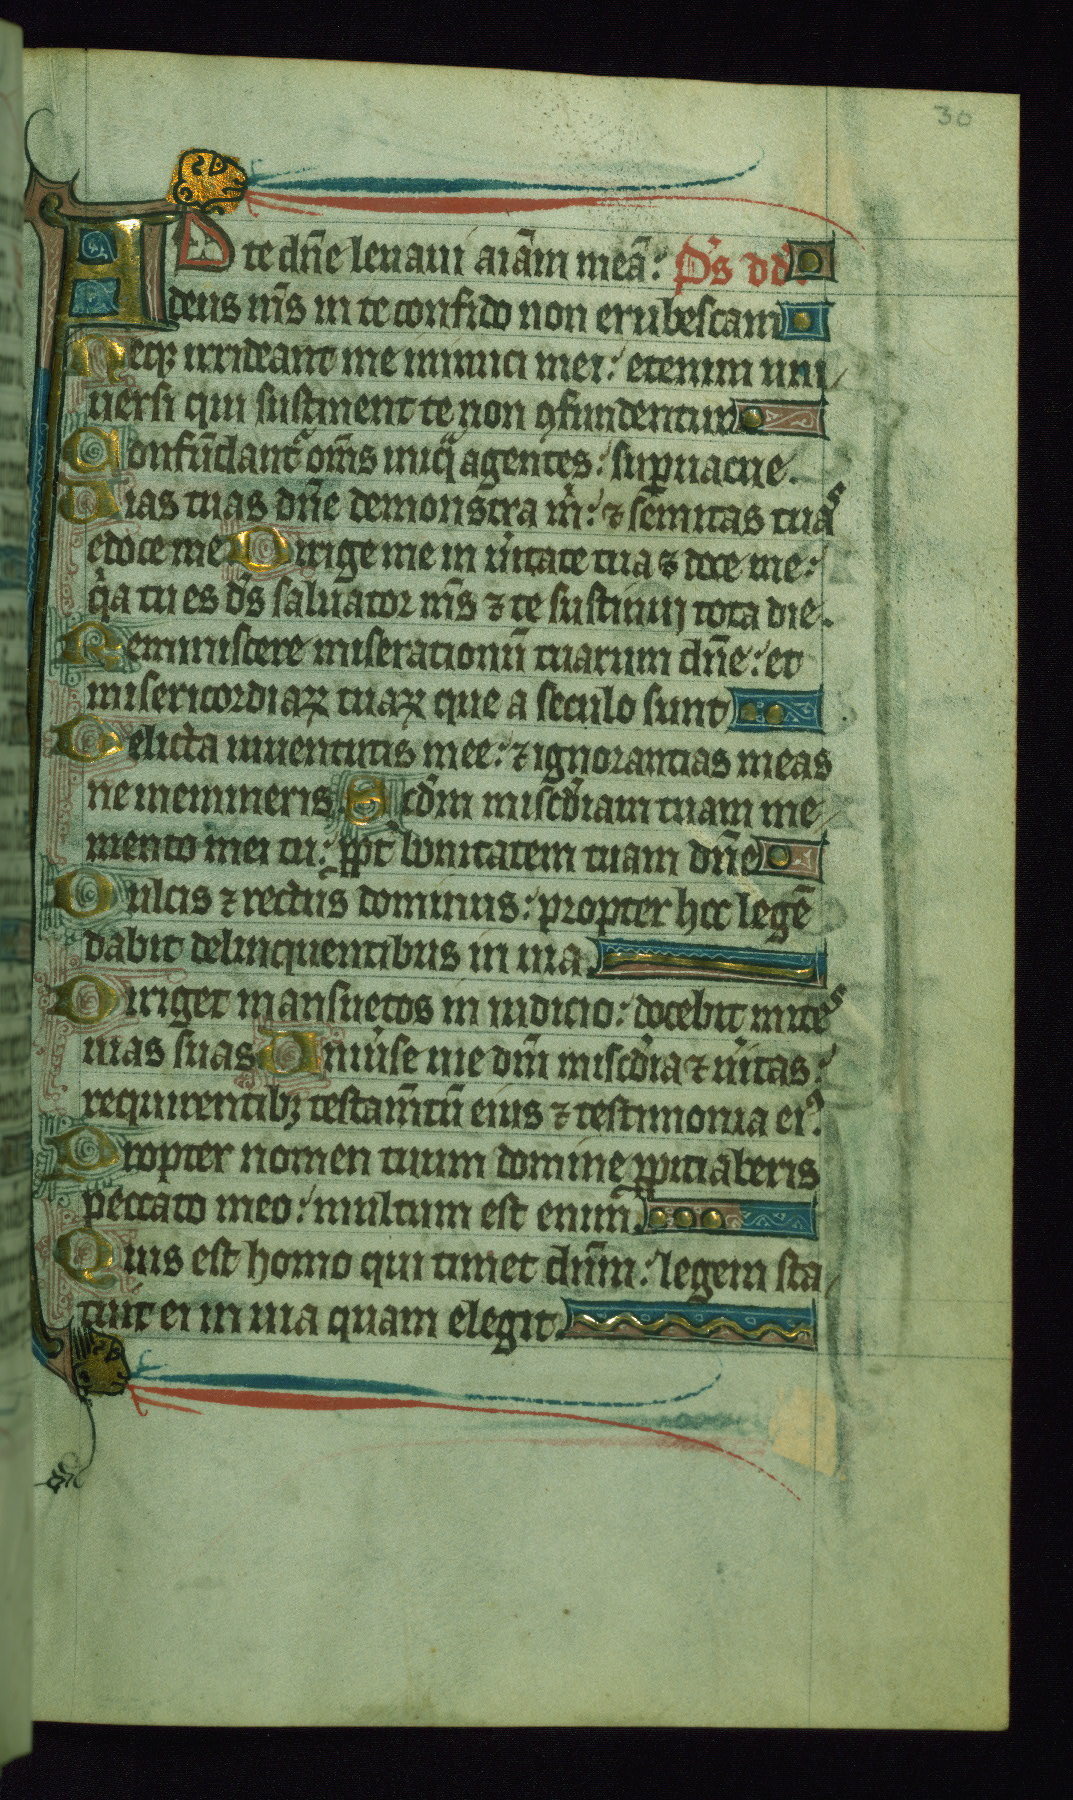 30
AD te dñe leuaui aīam meā: Ps dd.
deus nr̄s in te confido non erubescam
Neqꝫ irrideant me inimici mei: etenim uni
uersi qui sustinent te non ꝯfundentur
Confūdant᷑ om̄s iniq̄ agentes: suꝑuacue.
Vias tuas dñe demonstra m̄: ⁊ semitas tuas
edoce me Dirige me in u̾itate tua ⁊ doce me:
q̓a tu es ds̄ saluator nr̄s ⁊ te sustinuj tota die.
Reminiscere miserationū tuarum dñe: et
misericordiaꝝ tuaꝝ que a seculo sunt
Delicta iuuentutis mee: ⁊ ignorantias meas
ne memineris Scd̄m misc̄diam tuam me
mento mei tu: ꝓpt̾ bonitatem tuam dñe
Dulcis ⁊ rectus dominus: propter hoc legē
dabit delinquentibus in uia.
Diriget mansuetos in iudicio: docebit mites
uias suas Uniu̾se uie dn̄i misc̄dia ⁊ u̾itas:
requirentibꝫ testam̄tū eius ⁊ testimonia eiꝰ.
Propter nomen tuum domine ꝓpitiaberis
peccato meo: multum est enim.
Quis est homo qui timet dn̄m: legem sta
tuit ei in uia quam elegit.